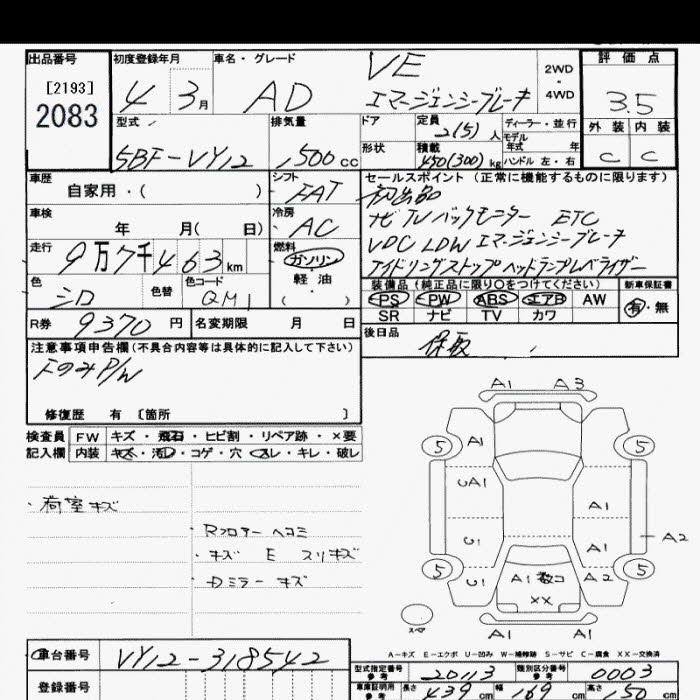 出品番号
[2193]
2083
初度登録年月
4 3月
車名・グレード
AD VE
エマージェンシーブレーキ
2WD
・
4WD
評価点
3.5
外装 内装
C C
型式
5BF-VY12
排気量
1,500cc
ドア
形状
定員
2(5)人
積載
450(300)kg
ディーラー・並行
モデル
年式 年
ハンドル 左・右
車歴
自家用・( )
シフト
FAT
セールスポイント(正常に機能するものに限ります)
初出品
ナビ TV バックモニター ETC
VDC LDW エマージェンシーブレーキ
アイドリングストップ ヘッドランプレベライザー
車検
年 月( 日)
冷房
AC
走行
9万7千463km
燃料
ガソリン
軽油
( )
色
シロ
色替
色コード
QM1
装備品(純正品に限り○をつけてください)
PS PW ABS エアB AW
SR ナビ TV カワ
新車保証書
有・無
R券
9370円
名変期限 月 日
後日品
保取
注意事項申告欄(不具合内容等は具体的に記入して下さい)
Fのみ P/W
修復歴 有〔箇所 〕
検査員
記入欄
FW キズ・飛石・ヒビ割・リペア跡・×要
内装 キズ・汚レ・コゲ・穴・スレ・キレ・破レ
・荷室キズ
Rフロアー ヘコミ
・キズ E スリキズ
・Dミラー キズ
A1 A3
5 A1 5
UA1 A1
U1 A1 A2
5 U1 A1 数コ A2 5
××
スペア
A1 A1
A-キズ E-エクボ U-凹み W-補修跡 S-サビ C-腐食 XX-交換済
車台番号
VY12-318542
登録番号
型式指定番号
参考
20113
類別区分番号
参考
0003
車庫証明用
参考
長さ 439cm 幅 169cm 高さ 150cm